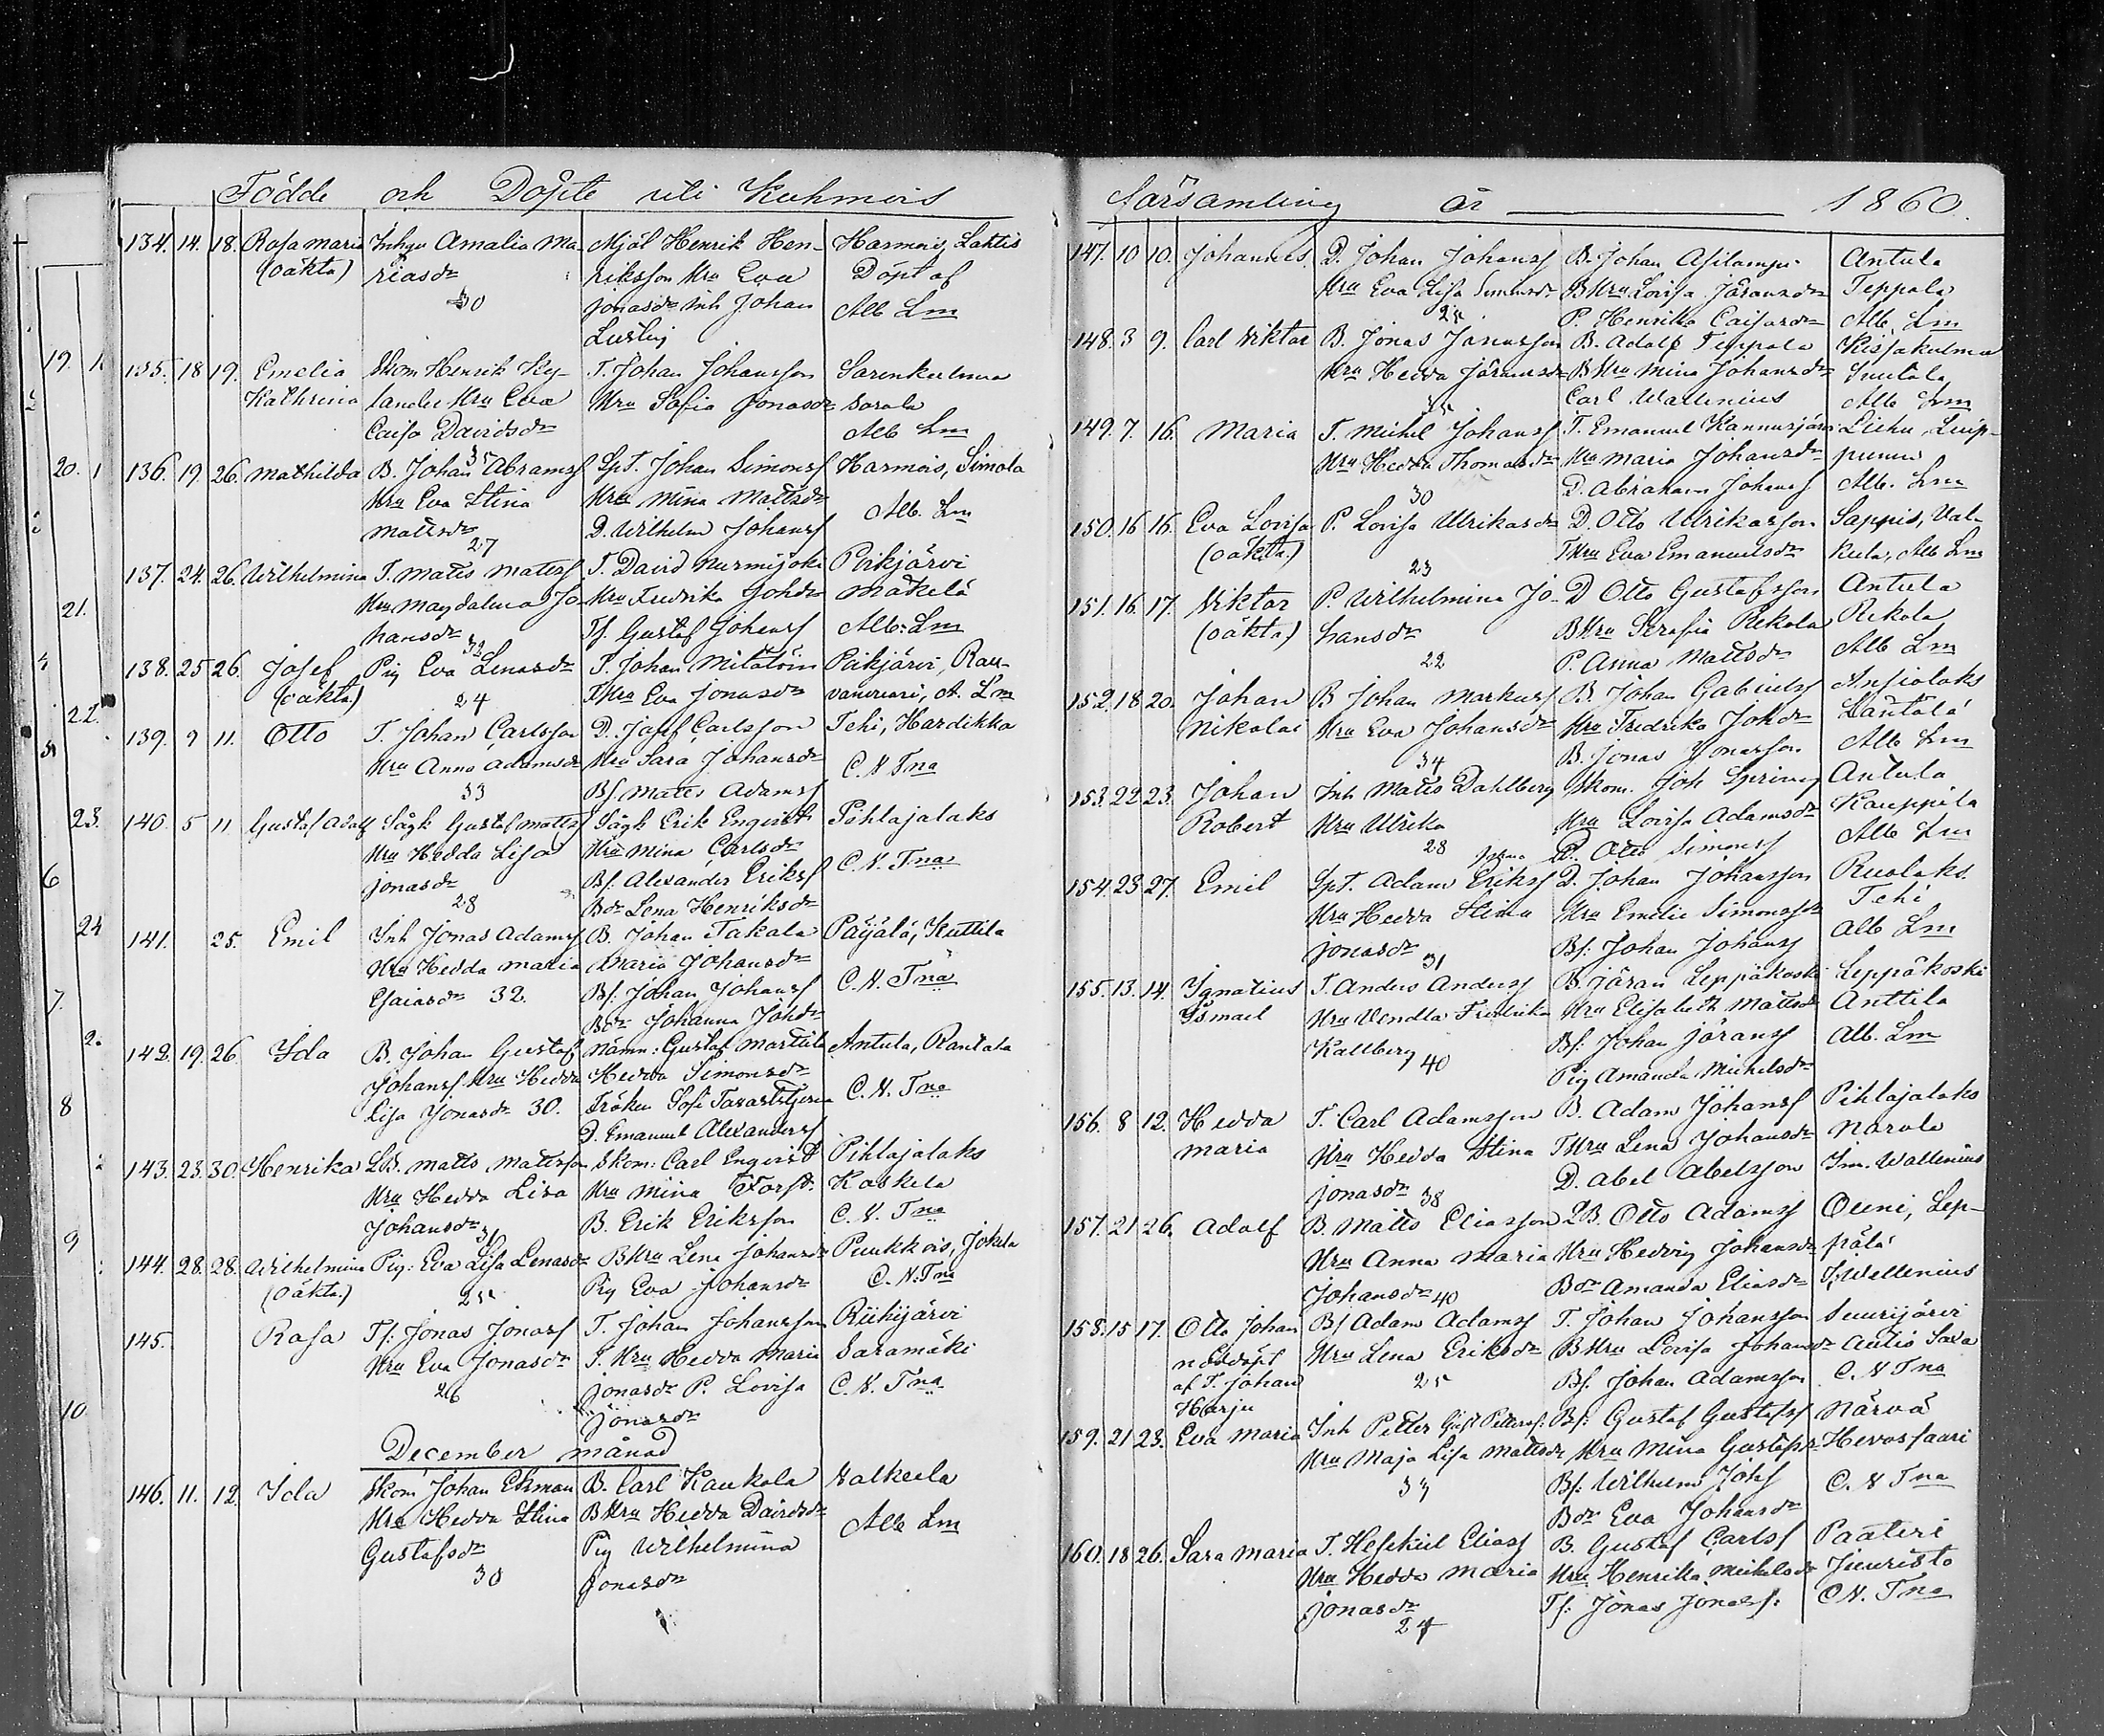 Födde och Döpte uti Kuhmois
134. 14. 18. Rosa Maria Inhys Amalia Ma- Mjöl Henrik Hen- Harmois, Lahtis
(oäkta) riasdr riksson Hru Eva Döpt af
30 Jonasdr Inh Johan Alb Lm
135. 18 19. Emelia Skom Henrik Ky- T. Johan Johansson Sarenkulma
Kathrina lander Hru Eva Hru Sofia Jonasdr Sarala
Caisa Davidsdr Alb Lm
35
136. 19. 26. Mathilda B. Johan Abramsf SpT. Johan Simonsf Harmois, Simola
Hru Eva Stina Hru Mina Mattsdr Alb. Lm
Mattsdr D. Wilhelm Johansf
27
137. 24. 26. Wilhelmina T. Matts Mattsf T. David Nurmijoki Pirkjärvi
Hru Magdalena Jo- Hru Fredrika Johdr Mäkelä
hansdr Tf. Gustaf Johansf Alb: Lm
32
138. 25 26. Josef Pig Eva Lenasdr T. Johan Päikjärvi, Rau-
(oäkta) 24 THru Eva Jonasdr A. Lm
139. 9 11. Otto T. Johan Carlsson D. Josef Carlsson Tehi, Hardikka
Hru Anna Adamsdr Hru Sara Johansdr C. N. Tna
33 Bf Matts Adamsf
140. 5 11 Gustaf Adolf Sågk Gustaf Mattsf Sågk Erik Engvist Pihlajalaks
Hru Hedda Lisa Hru Mina Carlsdr C. N. Tna
Jonasdr Bf. Alexander Eriksf
28 Bdr Lena Henriksdr
141. 25. Emil Inh Jonas Adamsf B. Johan Takala Päijälä, Kuttila
Hru Hedda Maria Maria Johansdr C. N. Tna
Esaiasdr 32. Bf. Johan Johansf
Bdr Johanna Johdr
142. 19. 26. Ida B. Johan Gustaf Nämn: Gustaf Marttila Antula, Rantala
Johansf Hru Hedda Hedda Simonsdr C. N. Tna
Lisa Jonasdr 30. Fröken Sofi Tavaststjerna
D. Emanuel Alexandersf
143. 23. 30. Henrika LB. Matts Mattsson Skom: Carl Engvist Pihlajalaks
Hru Hedda Lisa Hru Mina Forst. Koskela
Johansdr 31 B. Erik Eriksson C. N. Tna
144. 28. 28. Wilhelmina Pig: Eva Lisa Lenasdr BHru Lena Johansdr Puukkois, Jokela
(oäkta.) 25 Pig Eva Johansdr C. N. Tna
145. Rosa Tf: Jonas Jonasf T. Johan Johansson Riihijärvi
Hru Eva Jonasdr T. Hru Hedda Maria Saramäki
26 Jonasdr P. Lovisa C. N. Tna
Jonasdr
December månad
146. 11. 12. Ida Skom Johan Ekman B. Carl Kaukola Walkeela
Hru Hedda Stina BHru Hedda Davidsdr Alb Lm
Gustafsdr Pig Wilhelmina
30 Jonasdr
församling år 1860.
147. 10 10. Johannes D. Johan Johansf B. Johan Antula
Hru Eva Lisa Simonsdr BHru Lovisa Göransdr Teppala
25 P. Henrika Caisasdr Alb. Lm
148. 3 9. Carl Viktor B. Jonas Jonasson B. Adolf Teppala Kissakulma
Hru Hedda Göransdr BHru Mina Johansdr
35 Carl Wallenius Alb Lm
149. 7. 16. Maria T. Michel Johansf T. Emanuel Kannusjärvi Liehu,
Hru Hedda Thomasdr Hru Maria Johansdr
30 D. Abraham Johansf Alb. Lm
150. 16 16. Eva Lovisa P. Lovisa Ulrikasdr D. Otto Ulrikasson Sappis, Val-
(oäkta.) 23 THru Eva Emanuelsdr keela, Alb Lm
151. 16. 17. Viktor P. Wilhelmina Jo- D Otto Gustafsson Antula
(oäkta) hansdr BHru Serafia Rekola Rekola
22 P. Anna Mattsdr Alb Lm
152. 18 20. Johan B Johan Markusf B. Johan Gabrielsf Ansiolaks
Nikolai Hru Eva Johansdr Hru Fredrika Johdr Lantala
34 B. Jonas Jonasson Alb Lm
153. 22 23. Johan Inh Matts Dahlberg Skom. Joh Spring Antula
Robert Hru Ulrika Hru Lovisa Adamsdr Kauppila
28 D. Otto Simonsf Alb Lm
154. 23 27. Emil SpT. Adam Eriksf D. Johan Johansson Ruolaks
Hru Hedda Stina Hru Emelie Simonsdr Tehi
Jonasdr 31 Bf: Johan Johansf Alb Lm
155. 13. 14. Ignatius T. Anders Andersf B. Göran Leppäkoski Leppäkoski
Ismael Hru Vendla Fredrika Hru Elisabeth Mattsdr Anttila
Kallberg 40 Bf: Johan Göransf Alb. Lm
Pig Amanda Michelsdr
156. 8 12. Hedda T. Carl Adamsson B. Adam Johansf Pihlajalaks
Maria Hru Hedda Stina THru Lena Johansdr Narola
Jonasdr 38 D. Abel Abelsson Im. Wallenius
157. 21 26. Adolf B. Matts Eliasson LB. Otto Adamsf Ouni, Lep-
Hru Anna Maria Hru Hedvig Johansdr pälä
Johansdr 40 Bdr Amanda Eliasdr I. Wallenius
158. 15 17. Otto Johan Bf Adam Adamsf T. Johan Johansson Suurijärvi
nöddöpt Hru Lena Eriksdr BHru Lovisa Johansdr
af T. Johan 25 Bf. Johan Adamsson C. N Tna
Harju
159. 21 23. Eva Maria Inh Petter Gust Pettersf: Bf: Gustaf Gustafsf Närvä
Hru Maja Lisa Mattsdr Hru Mina Gustafsdr Hevossaari
33 Bf: Wilhelm Johsf C. N Tna
Bdr Eva Johansdr
160. 18 26. Sara Maria T. Heskiel Eliasf B. Gustaf Carlsf Paateri
Hru Hedda Maria Hru Henrika Mickelsdr
Jonasdr Tf: Jonas Jonasf: C N. Tna
24